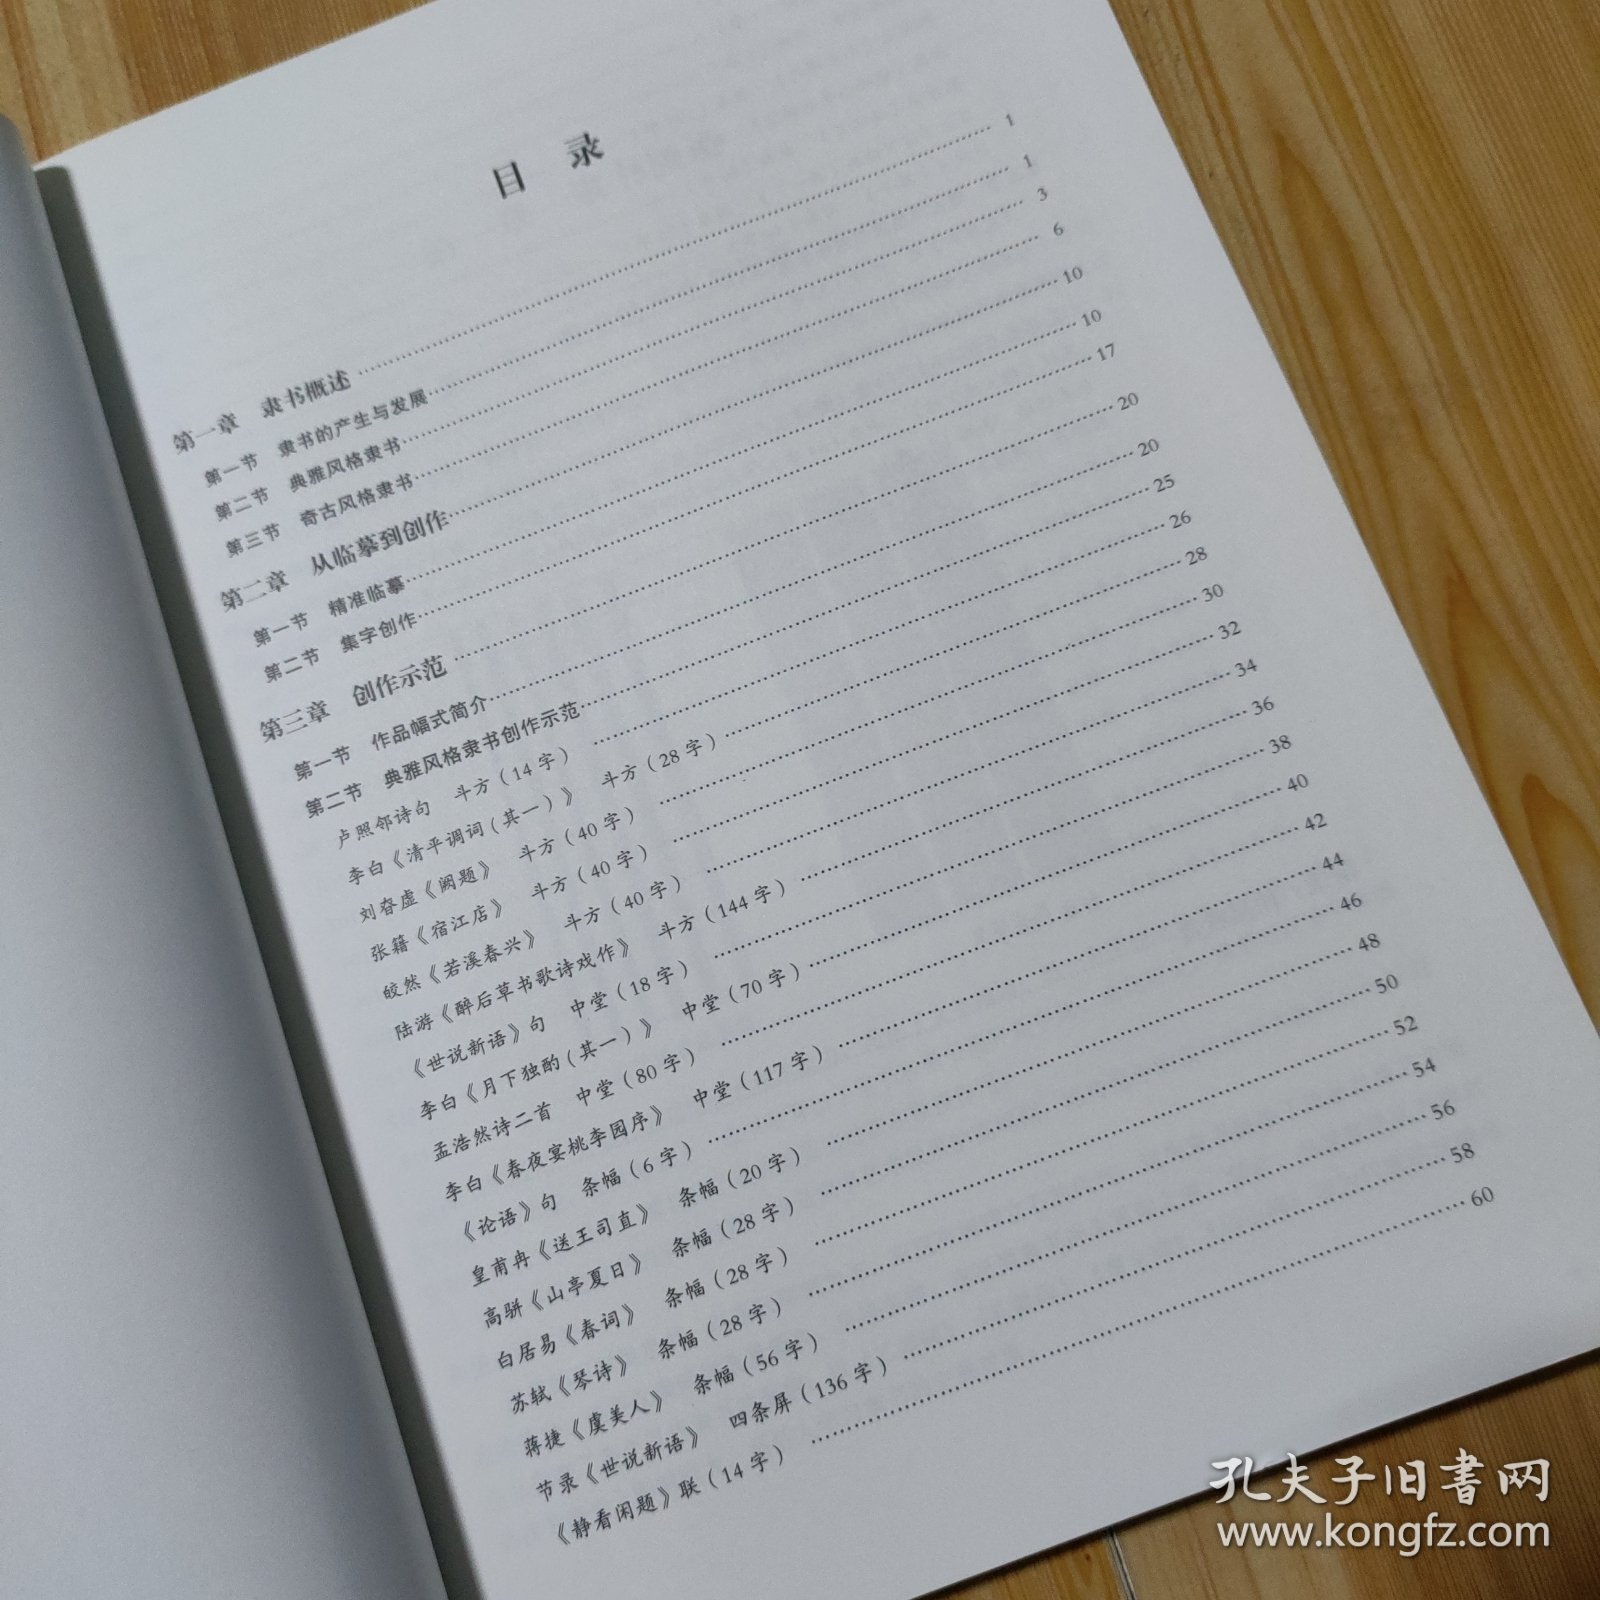 目 录
第一章 隶书概述 …… 1
第一节 隶书的产生与发展 …… 1
第二节 典雅风格隶书 …… 3
第三节 奇古风格隶书 …… 6
第二章 从临摹到创作 …… 10
第一节 精准临摹 …… 10
第二节 集字创作 …… 17
第三章 创作示范 …… 20
第一节 作品幅式简介 …… 20
第二节 典雅风格隶书创作示范 …… 25
卢照邻诗句 斗方(14字) …… 26
李白《清平调词(其一)》 斗方(28字) …… 28
刘昚虚《阙题》 斗方(40字) …… 30
张籍《宿江店》 斗方(40字) …… 32
皎然《若溪春兴》 斗方(40字) …… 34
陆游《醉后草书歌诗戏作》 斗方(144字) …… 36
《世说新语》句 中堂(18字) …… 38
李白《月下独酌(其一)》 中堂(70字) …… 40
孟浩然诗二首 中堂(80字) …… 42
李白《春夜宴桃李园序》 中堂(117字) …… 44
《论语》句 条幅(6字) …… 46
皇甫冉《送王司直》 条幅(20字) …… 48
高骈《山亭夏日》 条幅(28字) …… 50
白居易《春词》 条幅(28字) …… 52
苏轼《琴诗》 条幅(28字) …… 54
蒋捷《虞美人》 条幅(56字) …… 56
节录《世说新语》 四条屏(136字) …… 58
《静看闲题》联(14字) …… 60
孔夫子旧書网
www.kongfz.com